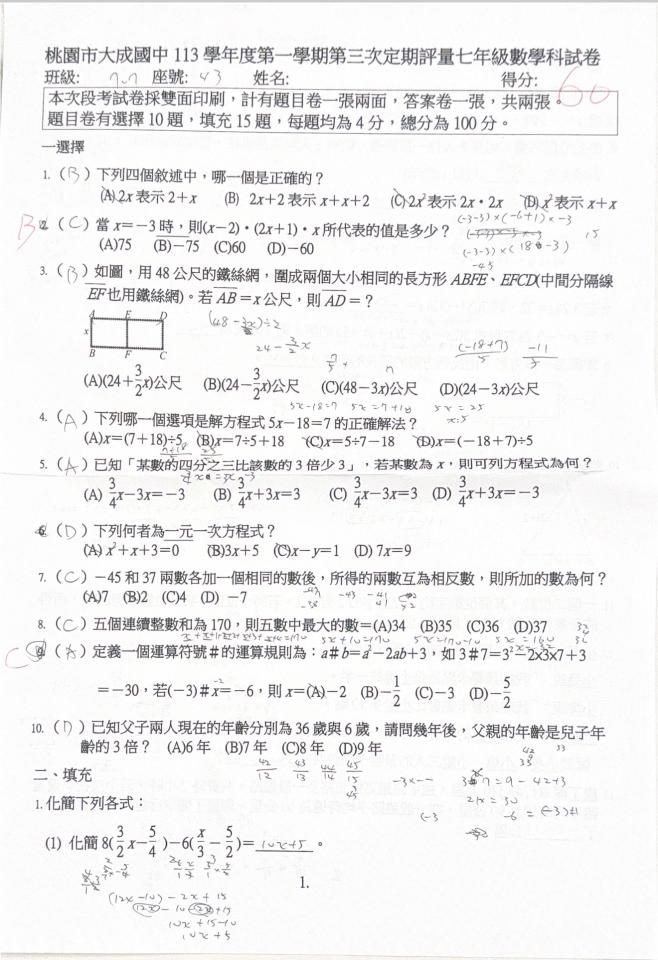 桃園市大成國中 113 學年度第一學期第三次定期評量七年級數學科試卷
班級: 座號: 43 姓名: 得分: 60
本次段考試卷採雙面印刷,計有題目卷一張兩面,答案卷一張,共兩張。
題目卷有選擇 10 題,填充 15 題,每題均為 4 分,總分為 100 分。
一選擇
1.(B)下列四個敘述中,哪一個是正確的?
(A) 2x 表示 2+x (B) 2x+2 表示 x+x+2 (C) 2x²表示 2x‧2x (D) x²表示 x+x
B 2.(C)當 x=-3 時,則(x-2)‧(2x+1)‧x 所代表的值是多少?
(-3-3)×(-6+1)×-3
(A)75 (B)-75 (C)60 (D)-60
15
-45
3.(B)如圖,用 48 公尺的鐵絲網,圍成兩個大小相同的長方形 ABFE、EFCD(中間分隔線
EF 也用鐵絲網)。若 AB=x 公尺,則 AD=?
A E D
x
B F C
(48-3x)÷2
24-3/2x
(-18+7)/5 -11/5
(A)(24+3/2x)公尺 (B)(24-3/2x)公尺 (C)(48-3x)公尺 (D)(24-3x)公尺
5x-18=7 5x=7+18 5x=25
x=5
4.(A)下列哪一個選項是解方程式 5x-18=7 的正確解法?
(A)x=(7+18)÷5 (B)x=7÷5+18 (C)x=5÷7-18 (D)x=(-18+7)÷5
5.(A)已知「某數的四分之三比該數的 3 倍少 3」,若某數為 x,則可列方程式為何?
(A) 3/4x-3x=-3 (B) 3/4x+3x=3 (C) 3/4x-3x=3 (D) 3/4x+3x=-3
6.(D)下列何者為一元一次方程式?
(A) x²+x+3=0 (B)3x+5 (C)x-y=1 (D) 7x=9
7.(C)-45 和 37 兩數各加一個相同的數後,所得的兩數互為相反數,則所加的數為何?
(A)7 (B)2 (C)4 (D) -7
-43 -41
8.(C)五個連續整數和為 170,則五數中最大的數=(A)34 (B)35 (C)36 (D)37
5x+10=170 5x=170-10 5x=160 x=32
C 9.(A)定義一個運算符號#的運算規則為:a#b=a²-2ab+3,如 3#7=3²-2x3x7+3
=-30,若(-3)#x=-6,則 x=(A)-2 (B)-1/2 (C)-3 (D)-3/2
10.(D)已知父子兩人現在的年齡分別為 36 歲與 6 歲,請問幾年後,父親的年齡是兒子年
齡的 3 倍? (A)6 年 (B)7 年 (C)8 年 (D)9 年
42/12 43/13 44/14 45/15
3#7=9-42+3
二、填充
1.化簡下列各式:
(1) 化簡 8(3/2x-5/4)-6(x/3-5/2)=10x+5。
(12x-10)-2x+15
10x+15-10
10x+5
1.